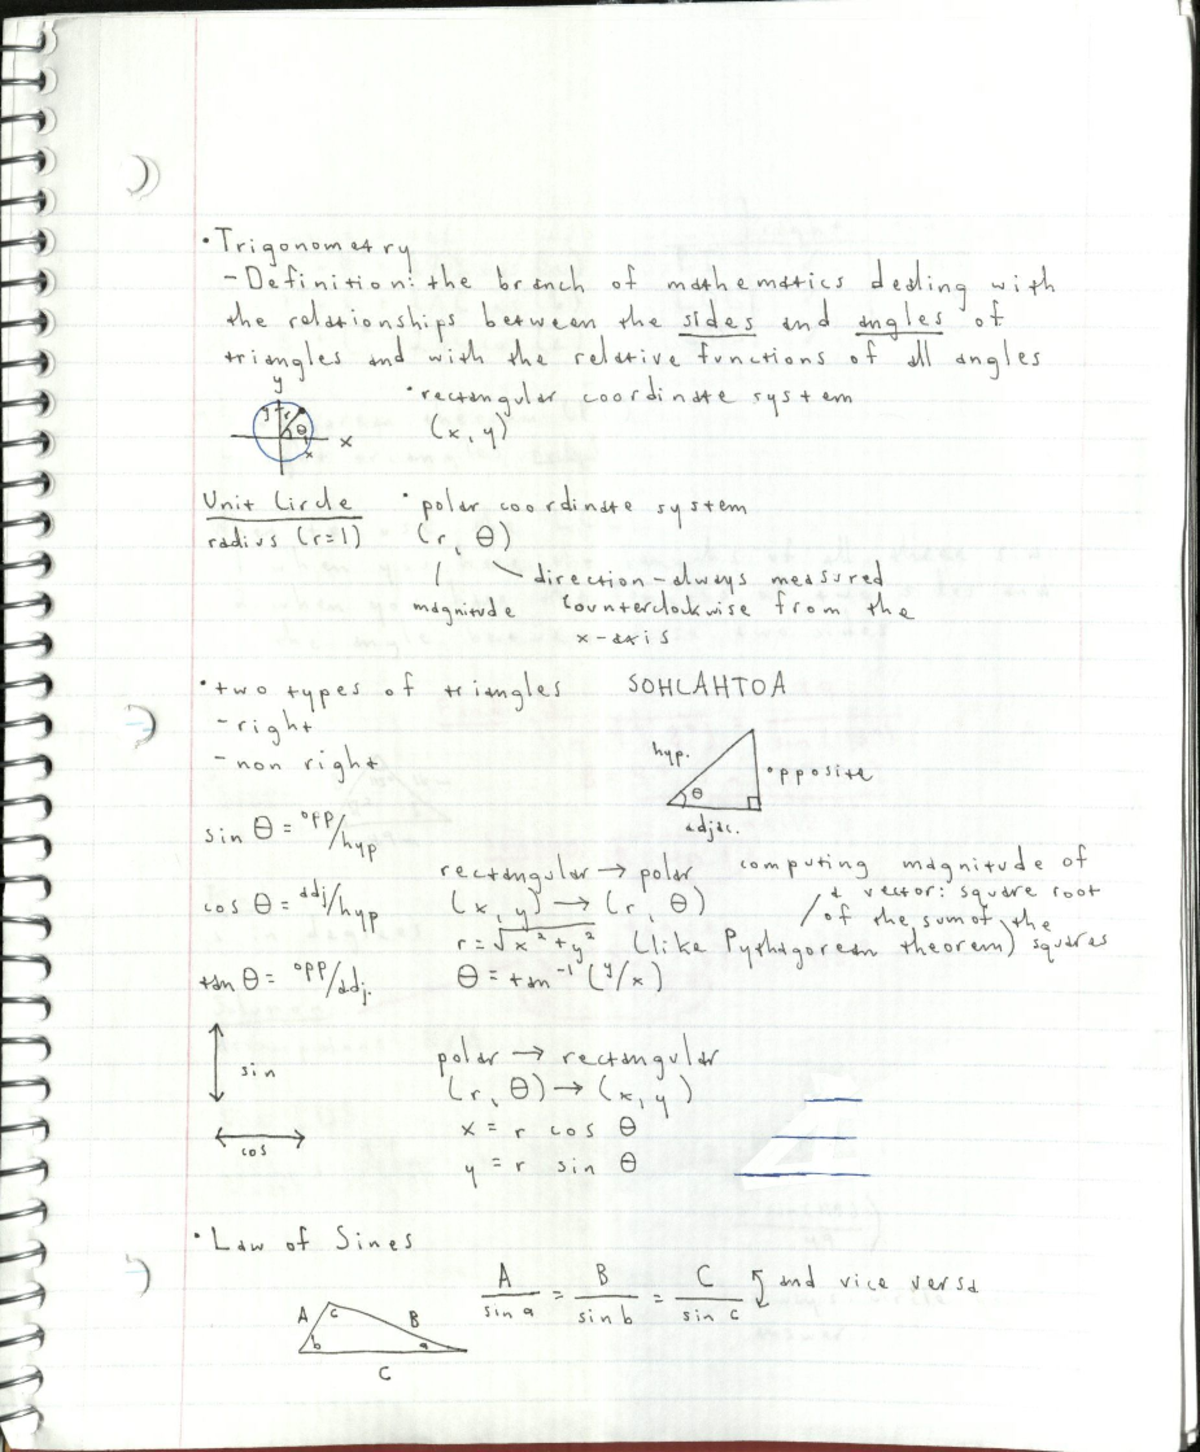 • Trigonometry
- Definition: the branch of mathematics dealing with
the relationships between the sides and angles of
triangles and with the relative functions of all angles
y
y r θ x x
• rectangular coordinate system
(x, y)
Unit Circle
radius (r=1)
• polar coordinate system
(r, θ)
magnitude
direction - always measured
counterclockwise from the
x-axis
• two types of triangles SOHCAHTOA
- right
- non right
hyp.
opposite
θ
adjac.
sin θ = opp/hyp
cos θ = adj/hyp
tan θ = opp/adj.
sin
cos
rectangular → polar
(x, y) → (r, θ)
r = √x² + y² (like Pythagorean theorem)
θ = tan⁻¹ (y/x)
computing magnitude of
a vector: square root
of the sum of the
squares
polar → rectangular
(r, θ) → (x, y)
x = r cos θ
y = r sin θ
• Law of Sines
A/sin a = B/sin b = C/sin c and vice versa
A c B
b a
C